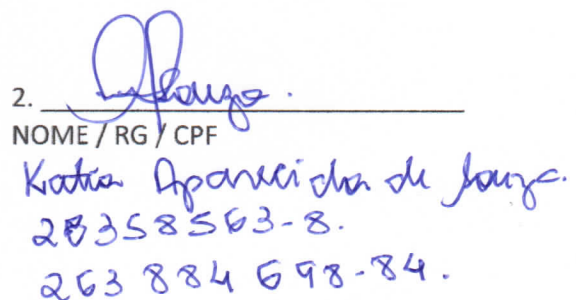 2. Souza.
NOME / RG / CPF
Katia Aparecida de Souza.
28358563-8.
263 884 698-84.